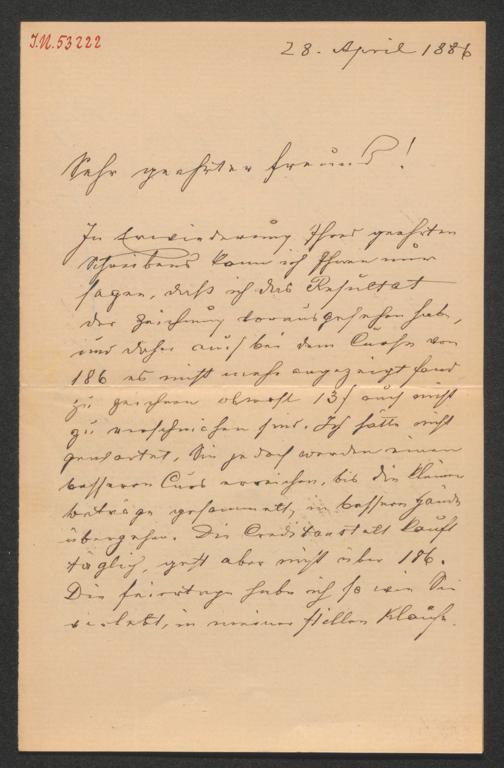 I.N. 53222
28. April 1886
Sehr geehrter Freund!
In Erwiederung Ihres geehrten
Schreibens kann ich Ihnen nur
sagen, daß ich das Resultat
der Zeichnung vorausgesehen habe,
und daher auch bei dem Curse von
186 es nicht mehr angezeigt fand
zu zeichnen obwohl auch nicht
zu verschmähen sind. Ich hätte nicht
gewartet, Sie jedoch werden einen
besseren Curs erreichen, bis die kleinen
Beträge gesammelt, in bessere Hände
übergehen. Die Creditanstalt kauft
täglich, geht aber nicht über 186.
Die Feiertage habe ich so wie Sie
verlebt, in meiner stillen Klause.